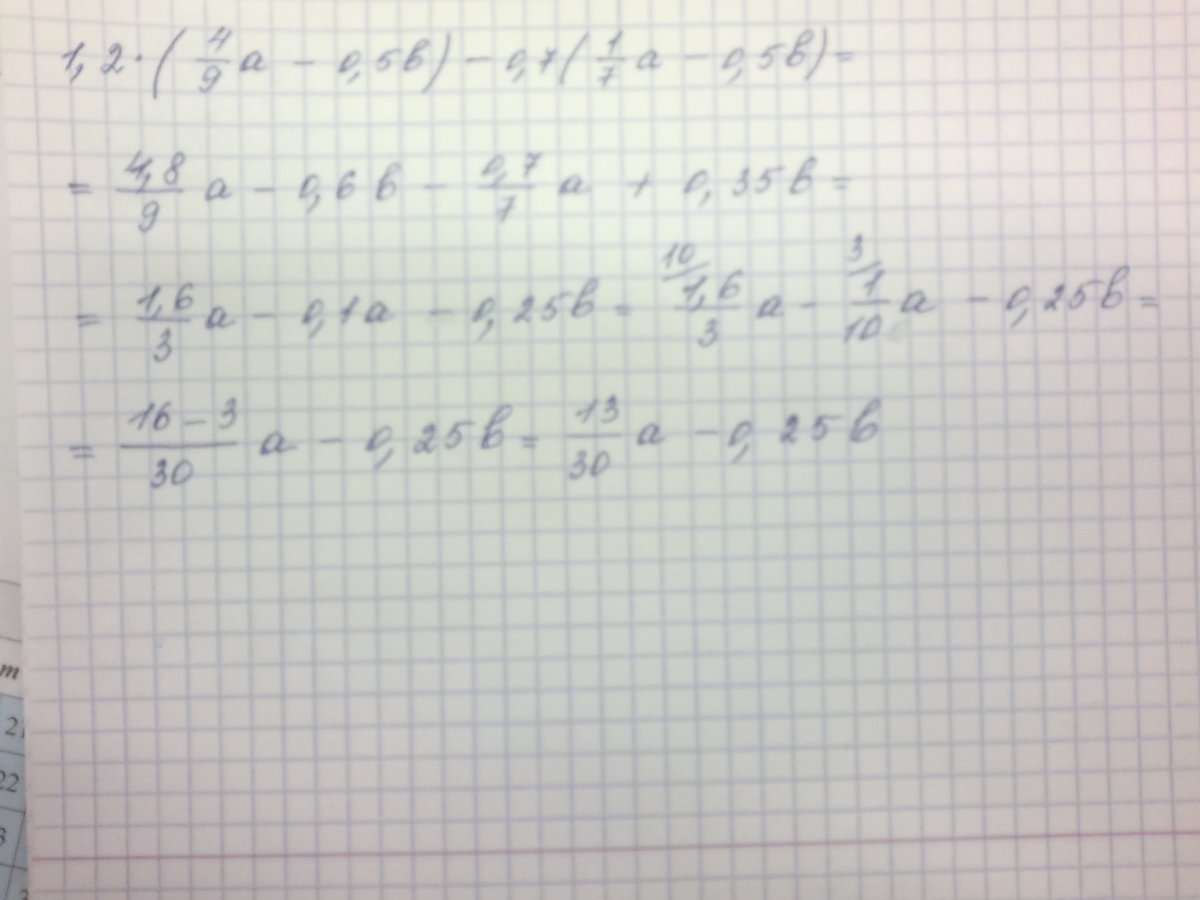 1,2·(4/9 a - 0,5в) - 0,7(1/7 a - 0,5в) =
= 4,8/9 a - 0,6в - 0,7/7 a + 0,35в =
= 1,6/3 a - 0,1a - 0,25в = 10/ 1,6/3 a - 3/ 1/10 a - 0,25в =
= 16-3/30 a - 0,25в = 13/30 a - 0,25в
т
22